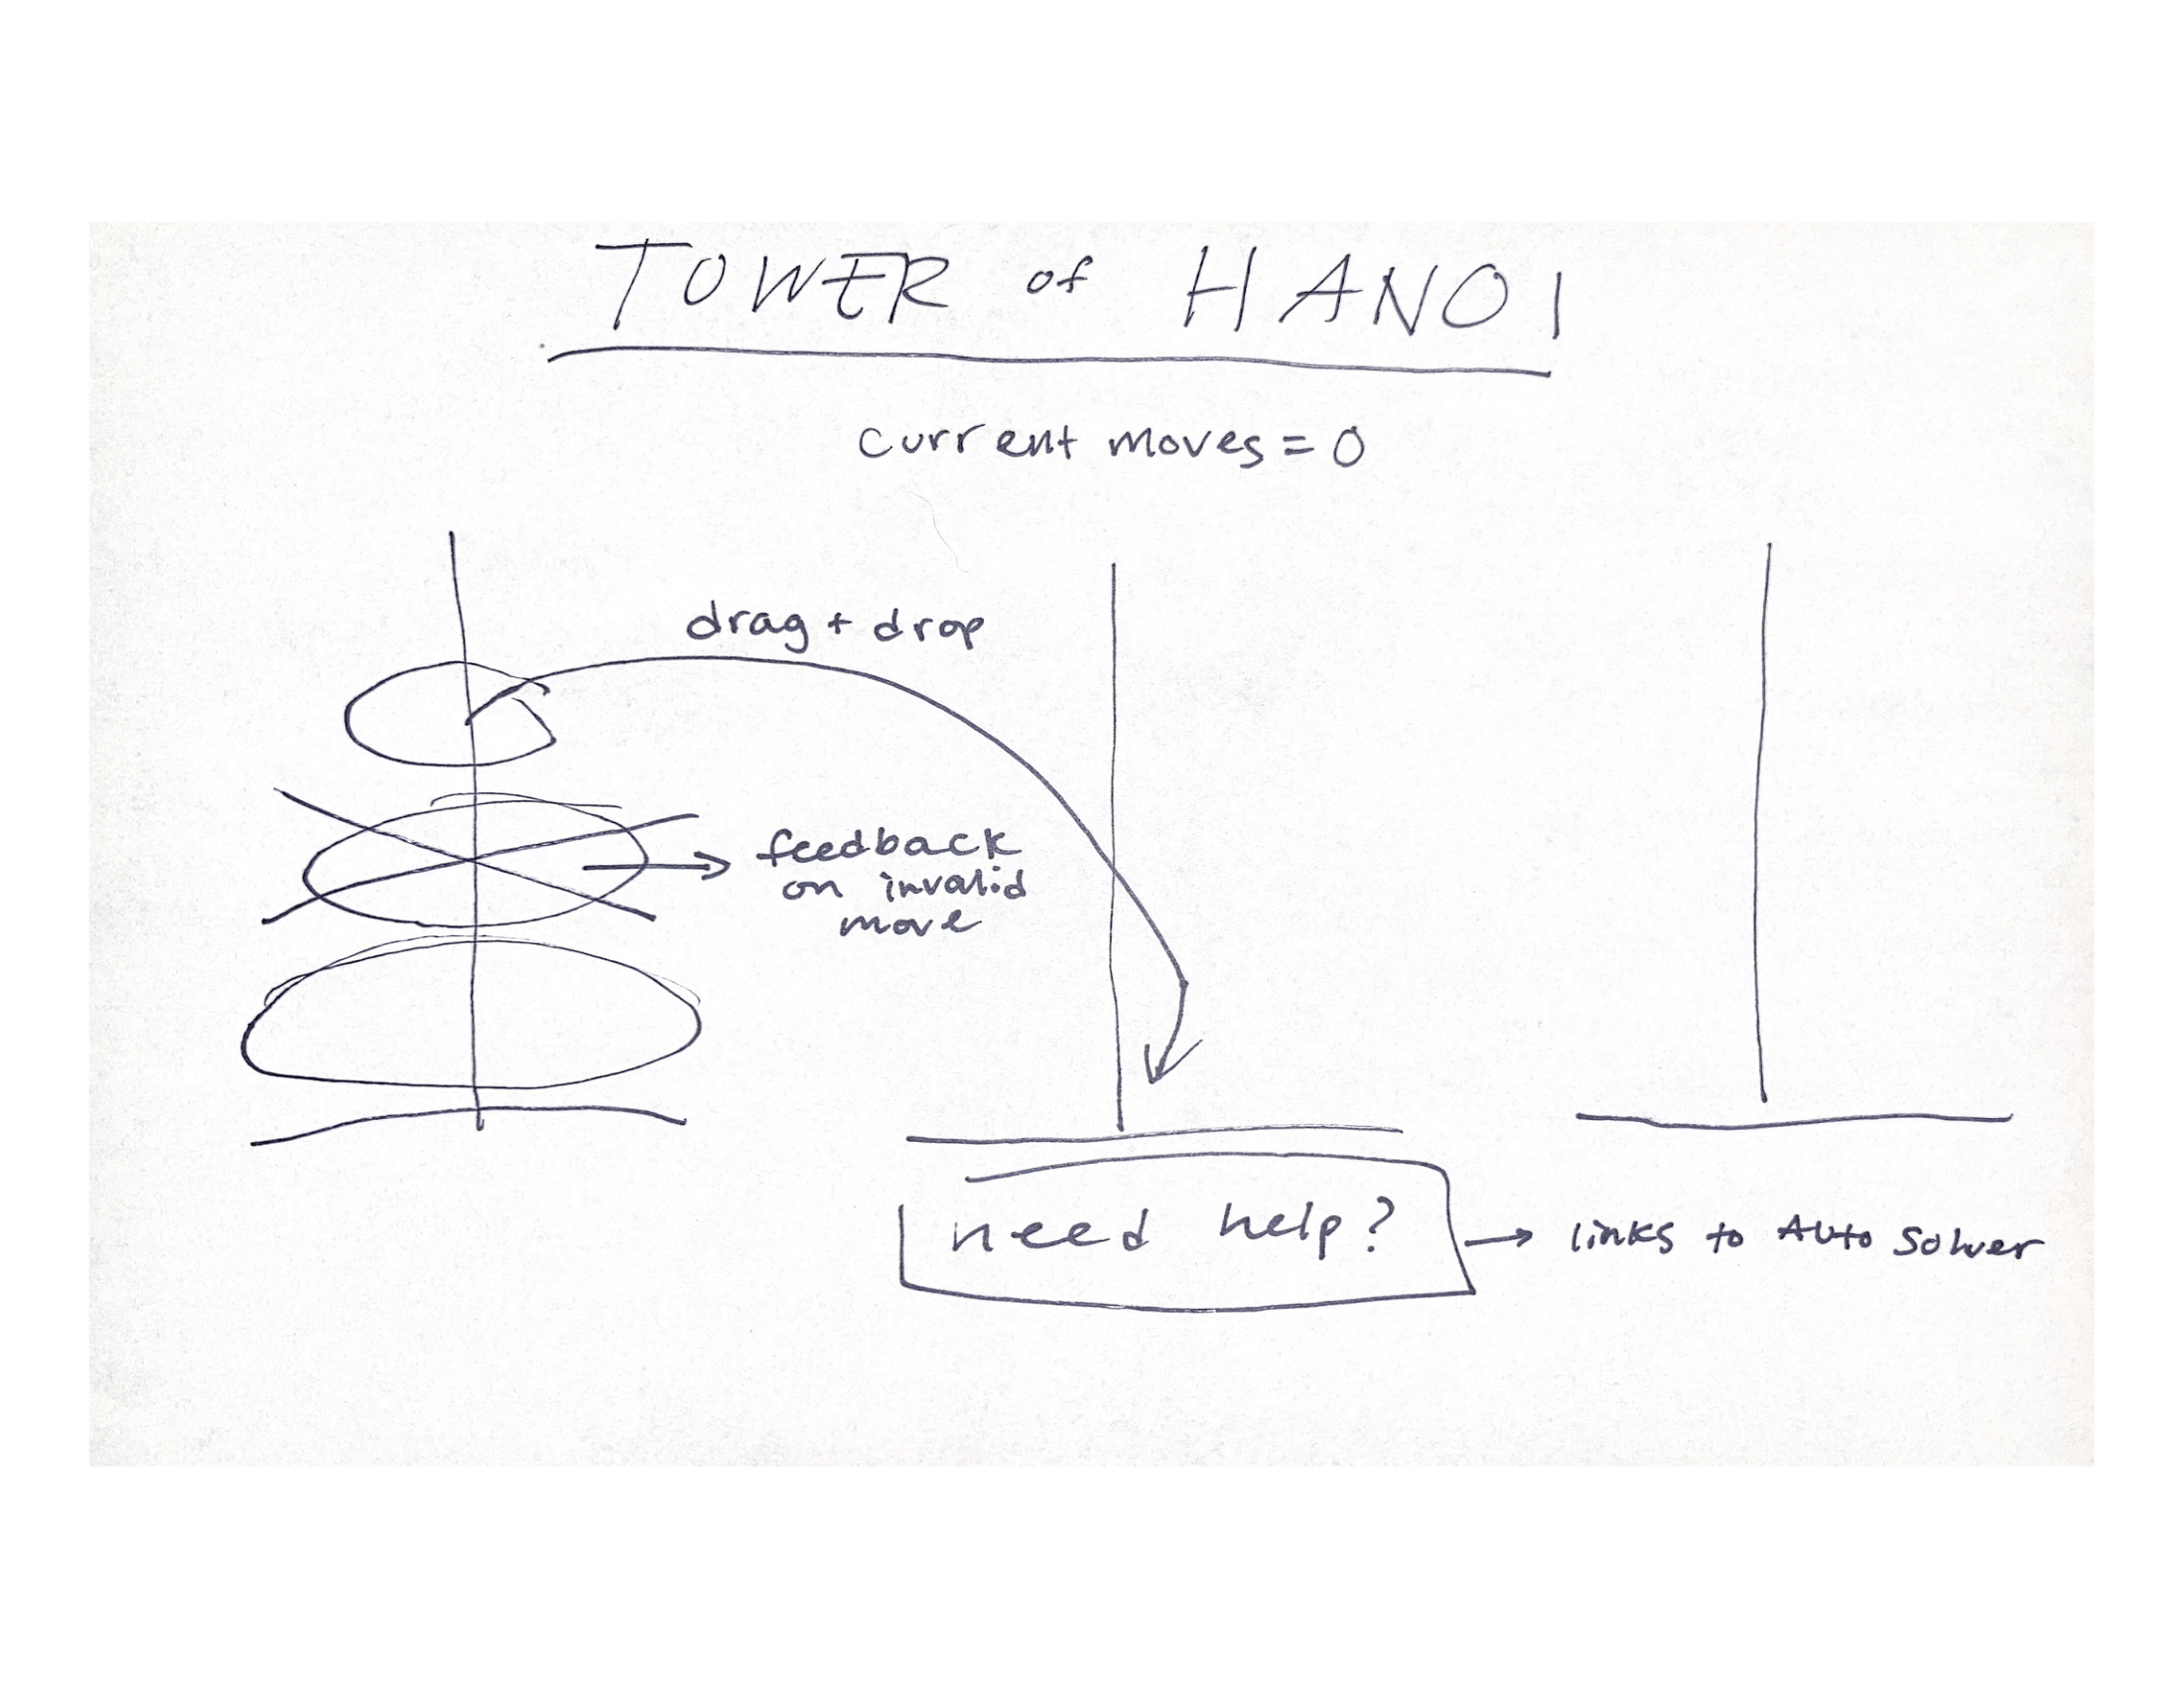 TOWER of HANOI
current moves = 0
drag + drop
feedback
on invalid
move
need help? → links to Auto Solver